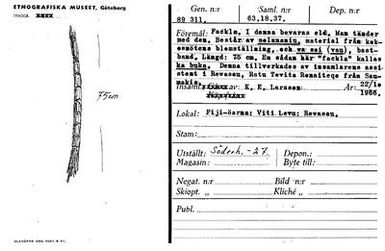 ETNOGRAFISKA MUSEET, Göteborg
FOTOGR.
75cm
Gen. n:r Saml. n:r Dep. n:r
89 311, 63,18.37,
Föremål: "Fackla. I denna bevaras eld. Man tänder
med den. Består av seimaamin, material från kok-
osnötens blomställning, och va sei (vau), bast-
band. Längd: 75 cm. En sådan här "fackla" kallas
ka buka. Denna tillverkades av insamlarens assi-
stent i Revasau, Ratu Tevita
K. E. Larsson År 22/10
1955.
Lokal: Fiji-öarna: Viti Levu: Revasau.
Stam:
Utställt: Söderh. -27. Depon.:
Magasin: Byte till:
Negat. n:r Bild n:r
Skiopt. „ Kliché „
Publ.